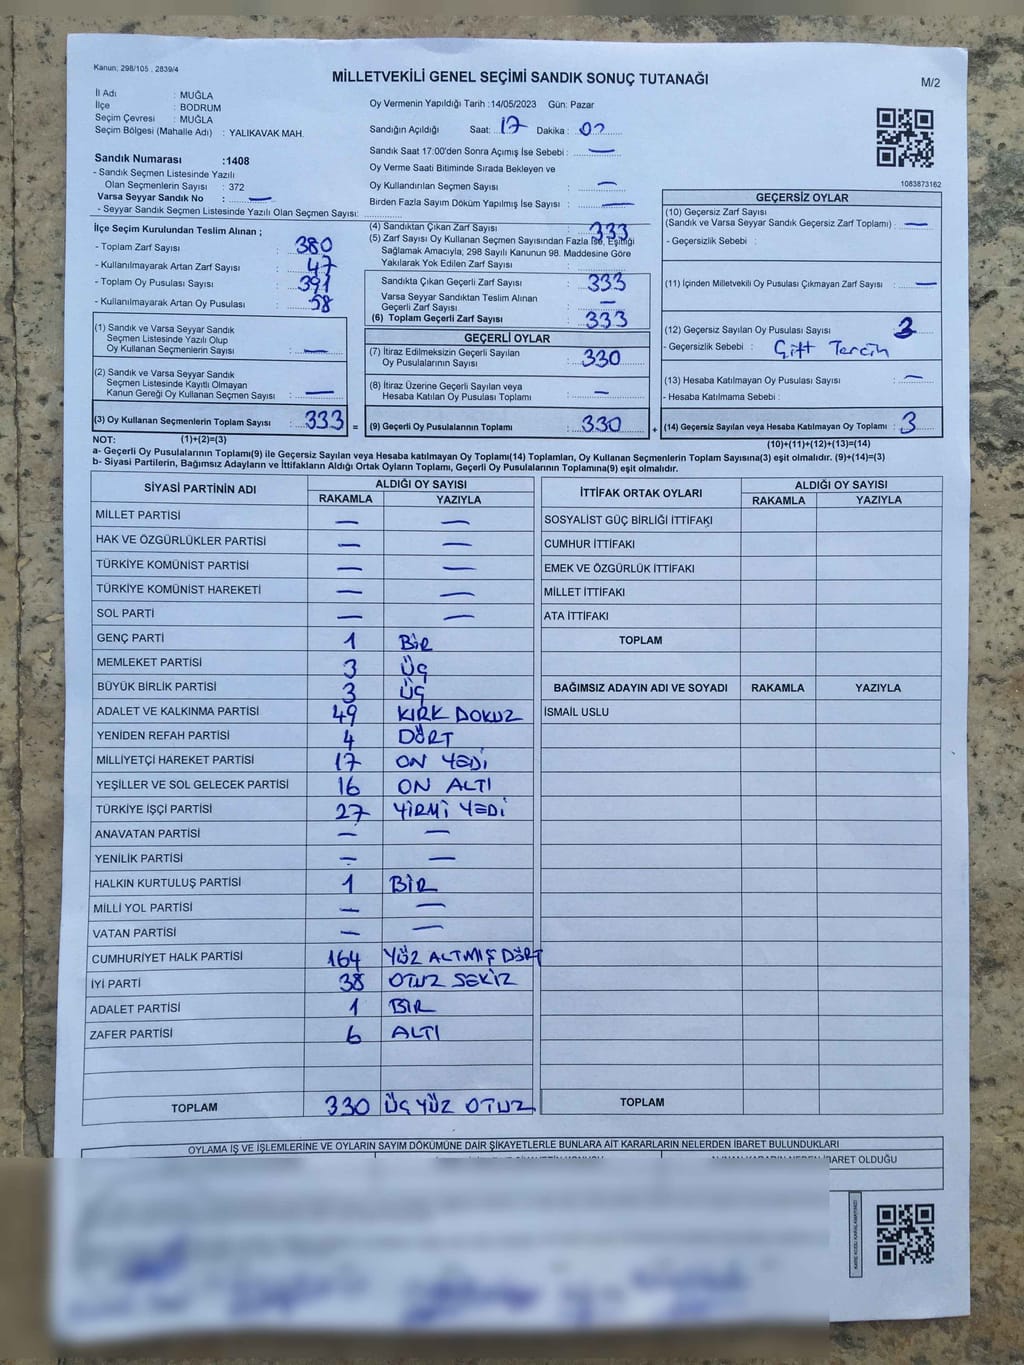 Kanun; 298/105 , 2839/4
MİLLETVEKİLİ GENEL SEÇİMİ SANDIK SONUÇ TUTANAĞI
M/2
İl Adı : MUĞLA
İlçe : BODRUM
Seçim Çevresi : MUĞLA
Seçim Bölgesi (Mahalle Adı) : YALIKAVAK MAH.
Sandık Numarası :1408
- Sandık Seçmen Listesinde Yazılı
Olan Seçmenlerin Sayısı : 372
Varsa Seyyar Sandık No : —
- Seyyar Sandık Seçmen Listesinde Yazılı Olan Seçmen Sayısı:
Oy Vermenin Yapıldığı Tarih :14/05/2023 Gün: Pazar
Sandığın Açıldığı Saat: 17 Dakika : 02
Sandık Saat 17:00'den Sonra Açımış İse Sebebi : —
Oy Verme Saati Bitiminde Sırada Bekleyen ve
Oy Kullandırılan Seçmen Sayısı : —
Birden Fazla Sayım Döküm Yapılmış İse Sayısı : —
1083873162
İlçe Seçim Kurulundan Teslim Alınan ;
- Toplam Zarf Sayısı : 380
- Kullanılmayarak Artan Zarf Sayısı : 47
- Toplam Oy Pusulası Sayısı : 391
- Kullanılmayarak Artan Oy Pusulası : 58
(1) Sandık ve Varsa Seyyar Sandık
Seçmen Listesinde Yazılı Olup
Oy Kullanan Seçmenlerin Sayısı : —
(2) Sandık ve Varsa Seyyar Sandık
Seçmen Listesinde Kayıtlı Olmayan
Kanun Gereği Oy Kullanan Seçmen Sayısı : —
(3) Oy Kullanan Seçmenlerin Toplam Sayısı : 333 =
(4) Sandıktan Çıkan Zarf Sayısı : 333
(5) Zarf Sayısı Oy Kullanan Seçmen Sayısından Fazla İse, Eşitliği
Sağlamak Amacıyla, 298 Sayılı Kanunun 98. Maddesine Göre
Yakılarak Yok Edilen Zarf Sayısı :
Sandıkta Çıkan Geçerli Zarf Sayısı : 333
Varsa Seyyar Sandıktan Teslim Alınan
Geçerli Zarf Sayısı : —
(6) Toplam Geçerli Zarf Sayısı : 333
GEÇERLİ OYLAR
(7) İtiraz Edilmeksizin Geçerli Sayılan
Oy Pusulalarının Sayısı : 330
(8) İtiraz Üzerine Geçerli Sayılan veya
Hesaba Katılan Oy Pusulası Toplamı : —
(9) Geçerli Oy Pusulalarının Toplamı : 330 +
GEÇERSİZ OYLAR
(10) Geçersiz Zarf Sayısı
(Sandık ve Varsa Seyyar Sandık Geçersiz Zarf Toplamı) : —
- Geçersizlik Sebebi :
(11) İçinden Milletvekili Oy Pusulası Çıkmayan Zarf Sayısı : —
(12) Geçersiz Sayılan Oy Pusulası Sayısı : 3
- Geçersizlik Sebebi : Çift Tercih
(13) Hesaba Katılmayan Oy Pusulası Sayısı : —
- Hesaba Katılmama Sebebi :
(14) Geçersiz Sayılan veya Hesaba Katılmayan Oy Toplamı : 3
NOT: (1)+(2)=(3) (10)+(11)+(12)+(13)=(14)
a- Geçerli Oy Pusulalarının Toplamı(9) ile Geçersiz Sayılan veya Hesaba katılmayan Oy Toplamı(14) Toplamları, Oy Kullanan Seçmenlerin Toplam Sayısına(3) eşit olmalıdır. (9)+(14)=(3)
b- Siyasi Partilerin, Bağımsız Adayların ve İttifakların Aldığı Ortak Oyların Toplamı, Geçerli Oy Pusulalarının Toplamına(9) eşit olmalıdır.
SİYASİ PARTİNİN ADI ALDIĞI OY SAYISI
RAKAMLA YAZIYLA
MİLLET PARTİSİ — —
HAK VE ÖZGÜRLÜKLER PARTİSİ — —
TÜRKİYE KOMÜNİST PARTİSİ — —
TÜRKİYE KOMÜNİST HAREKETİ — —
SOL PARTİ — —
GENÇ PARTİ 1 BİR
MEMLEKET PARTİSİ 3 ÜÇ
BÜYÜK BİRLİK PARTİSİ 3 ÜÇ
ADALET VE KALKINMA PARTİSİ 49 KIRK DOKUZ
YENİDEN REFAH PARTİSİ 4 DÖRT
MİLLİYETÇİ HAREKET PARTİSİ 17 ON YEDİ
YEŞİLLER VE SOL GELECEK PARTİSİ 16 ON ALTI
TÜRKİYE İŞÇİ PARTİSİ 27 YİRMİ YEDİ
ANAVATAN PARTİSİ — —
YENİLİK PARTİSİ — —
HALKIN KURTULUŞ PARTİSİ 1 BİR
MİLLİ YOL PARTİSİ — —
VATAN PARTİSİ — —
CUMHURİYET HALK PARTİSİ 164 YÜZ ALTMIŞ DÖRT
İYİ PARTİ 38 OTUZ SEKİZ
ADALET PARTİSİ 1 BIR
ZAFER PARTİSİ 6 ALTI
TOPLAM 330 ÜÇ YÜZ OTUZ
İTTİFAK ORTAK OYLARI ALDIĞI OY SAYISI
RAKAMLA YAZIYLA
SOSYALİST GÜÇ BİRLİĞİ İTTİFAKI
CUMHUR İTTİFAKI
EMEK VE ÖZGÜRLÜK İTTİFAKI
MİLLET İTTİFAKI
ATA İTTİFAKI
TOPLAM
BAĞIMSIZ ADAYIN ADI VE SOYADI RAKAMLA YAZIYLA
İSMAİL USLU
TOPLAM
OYLAMA İŞ VE İŞLEMLERİNE VE OYLARIN SAYIM DÖKÜMÜNE DAİR ŞİKAYETLERLE BUNLARA AİT KARARLARIN NELERDEN İBARET BULUNDUKLARI
OLDUĞU